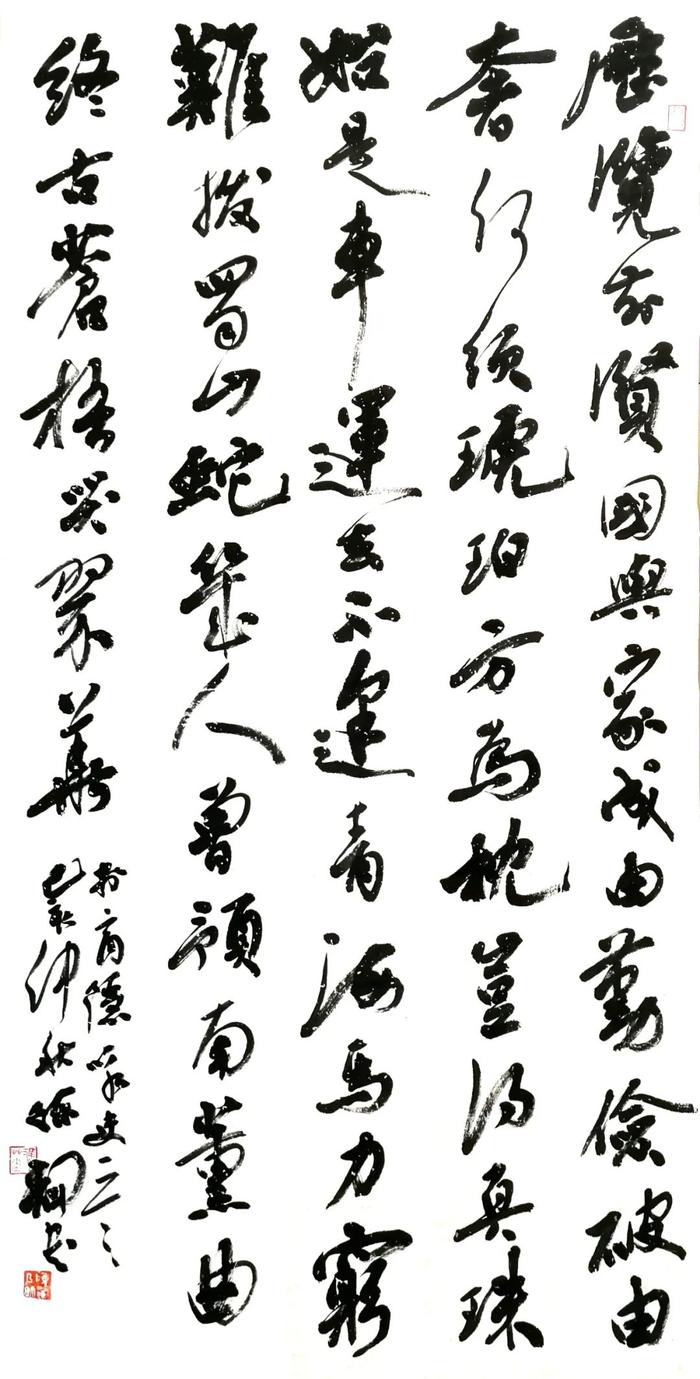 歷覽前賢國與家成由勤儉破由
奢何須琥珀方為枕豈得真珠
始是車運去不逢青海馬力窮
難拔蜀山蛇幾人曾預南薰曲
終古蒼梧哭翠華
商隱詠史
仲秋 書